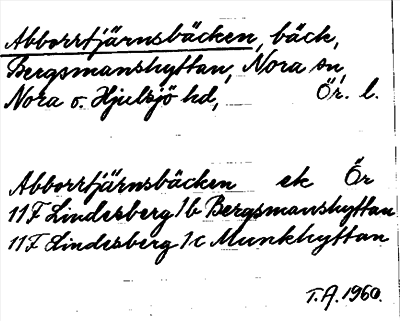 Abborrtjärnsbäcken, bäck,
Bergsmanshyttan, Nora sn,
Nora o. Hjulsjö hd, Ör. l.
Abborrtjärnsbäcken ek Ör
11F Lindesberg 1b Bergsmanshyttan
11F Lindesberg 1c Munkhyttan
T.A. 1960.